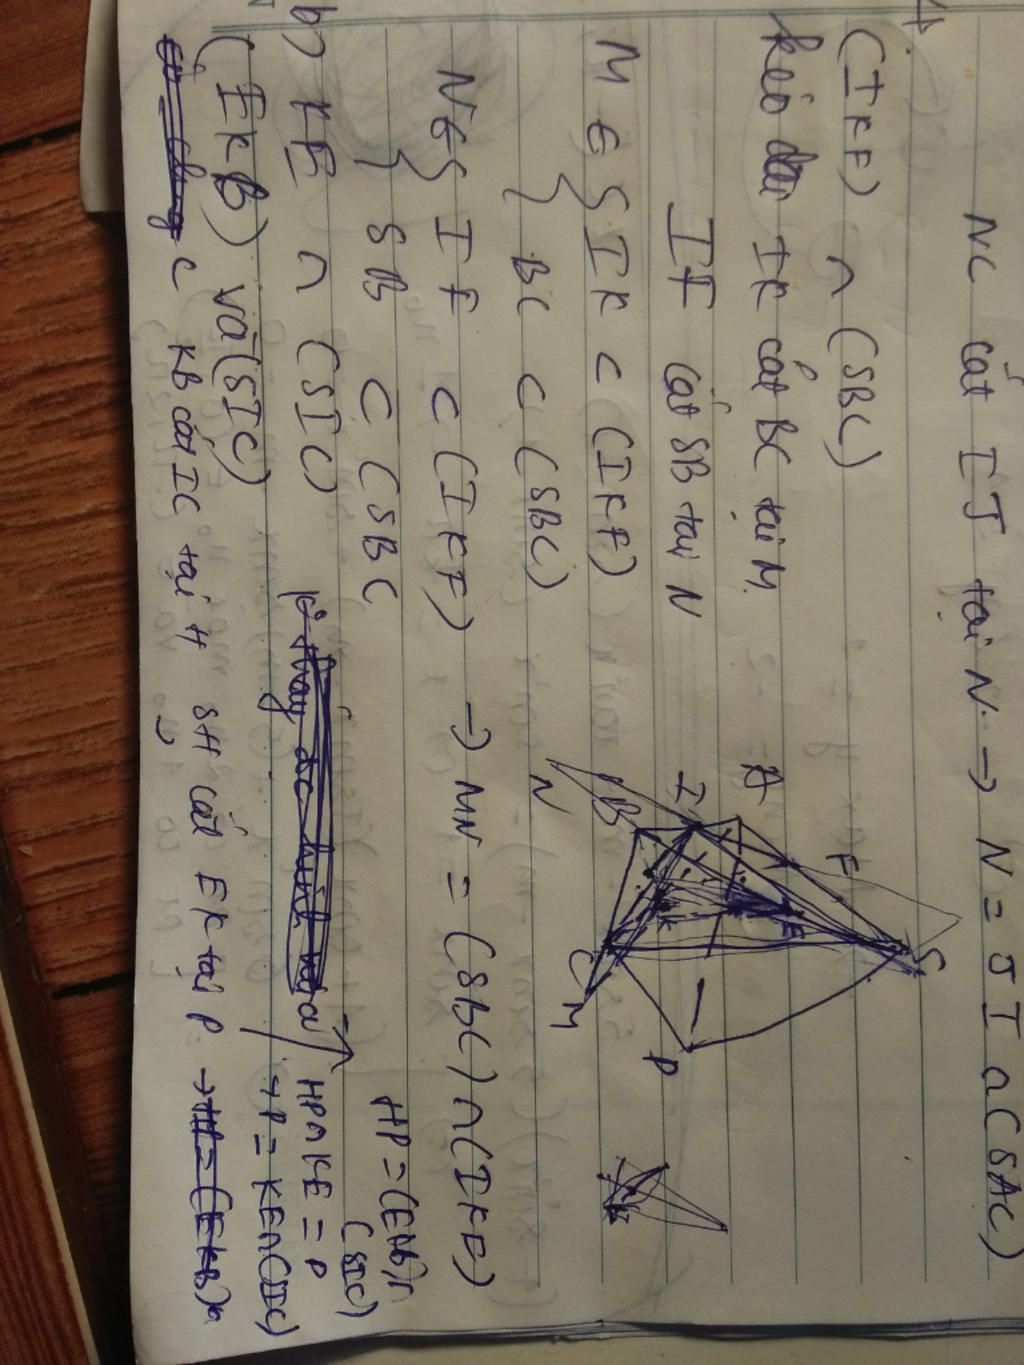 NC cắt IJ tại N → N = JI ∩ (SAC)
(IKF) ∩ (SBC)
kéo dài IK cắt BC tại M
IF cắt SB tại N
M ∈ { IK ⊂ (IKF)
BC ⊂ (SBC)
N ∈ { IF ⊂ (IKF) → MN = (SBC) ∩ (IKF)
SB ⊂ (SBC
b) KE ∩ (SIC)
(EKB) và (SIC)
C KB cắt IC tại H SH cắt EK tại P →
HP = (EKB) ∩
(SIC)
HP ∩ KE = P
→ P = KE ∩ (SIC)
A
F
S
I
B
N
E
K
C
M
P